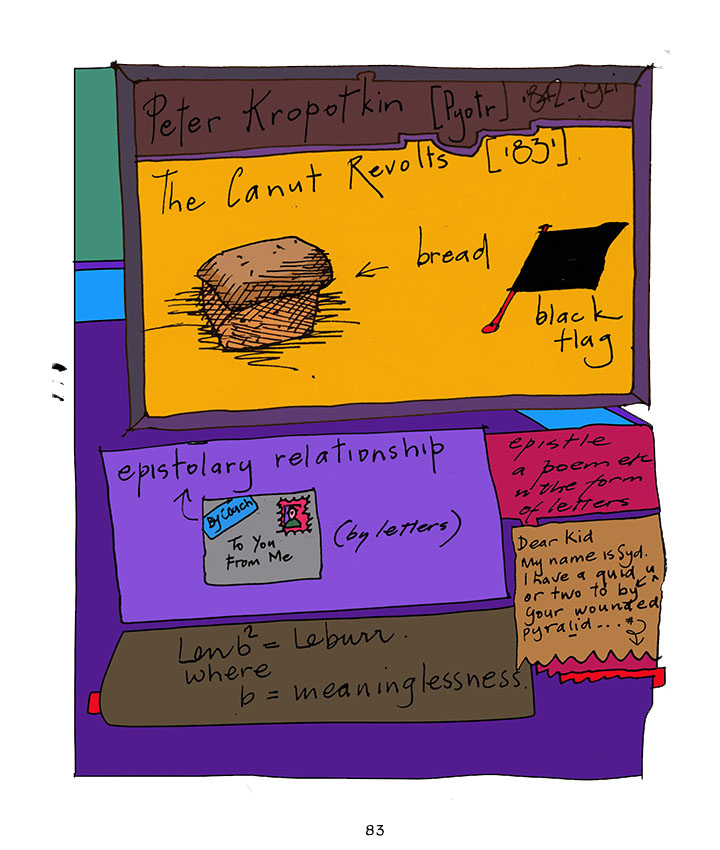 Peter Kropotkin [Pyotr] 1842-1921
The Canut Revolts ['83']
bread
black
flag
epistolary relationship
By Coach
To You
From Me
(by letters)
epistle
a poem etc
in the form
of letters
Dear Kid
My name is Syd.
I have a quid u
or two to by ^
your wounded
pyralid ---*
Lenb² = Leburr.
where
b = meaninglessness.
83